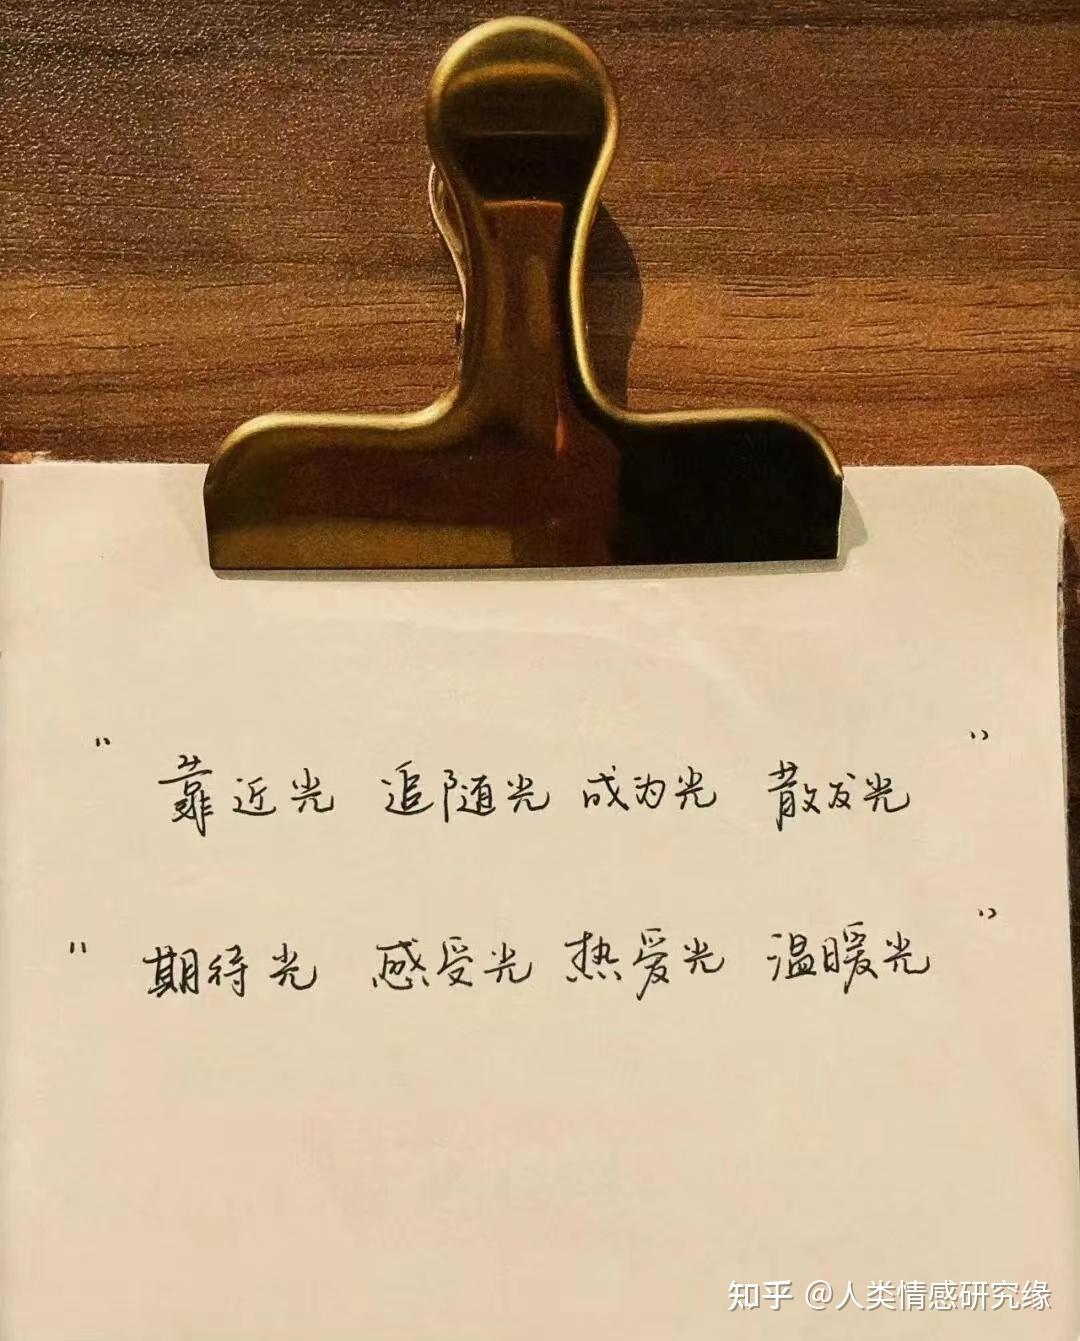 " 靠近光 追随光 成为光 散发光 "
" 期待光 感受光 热爱光 温暖光 "
知乎 @人类情感研究缘